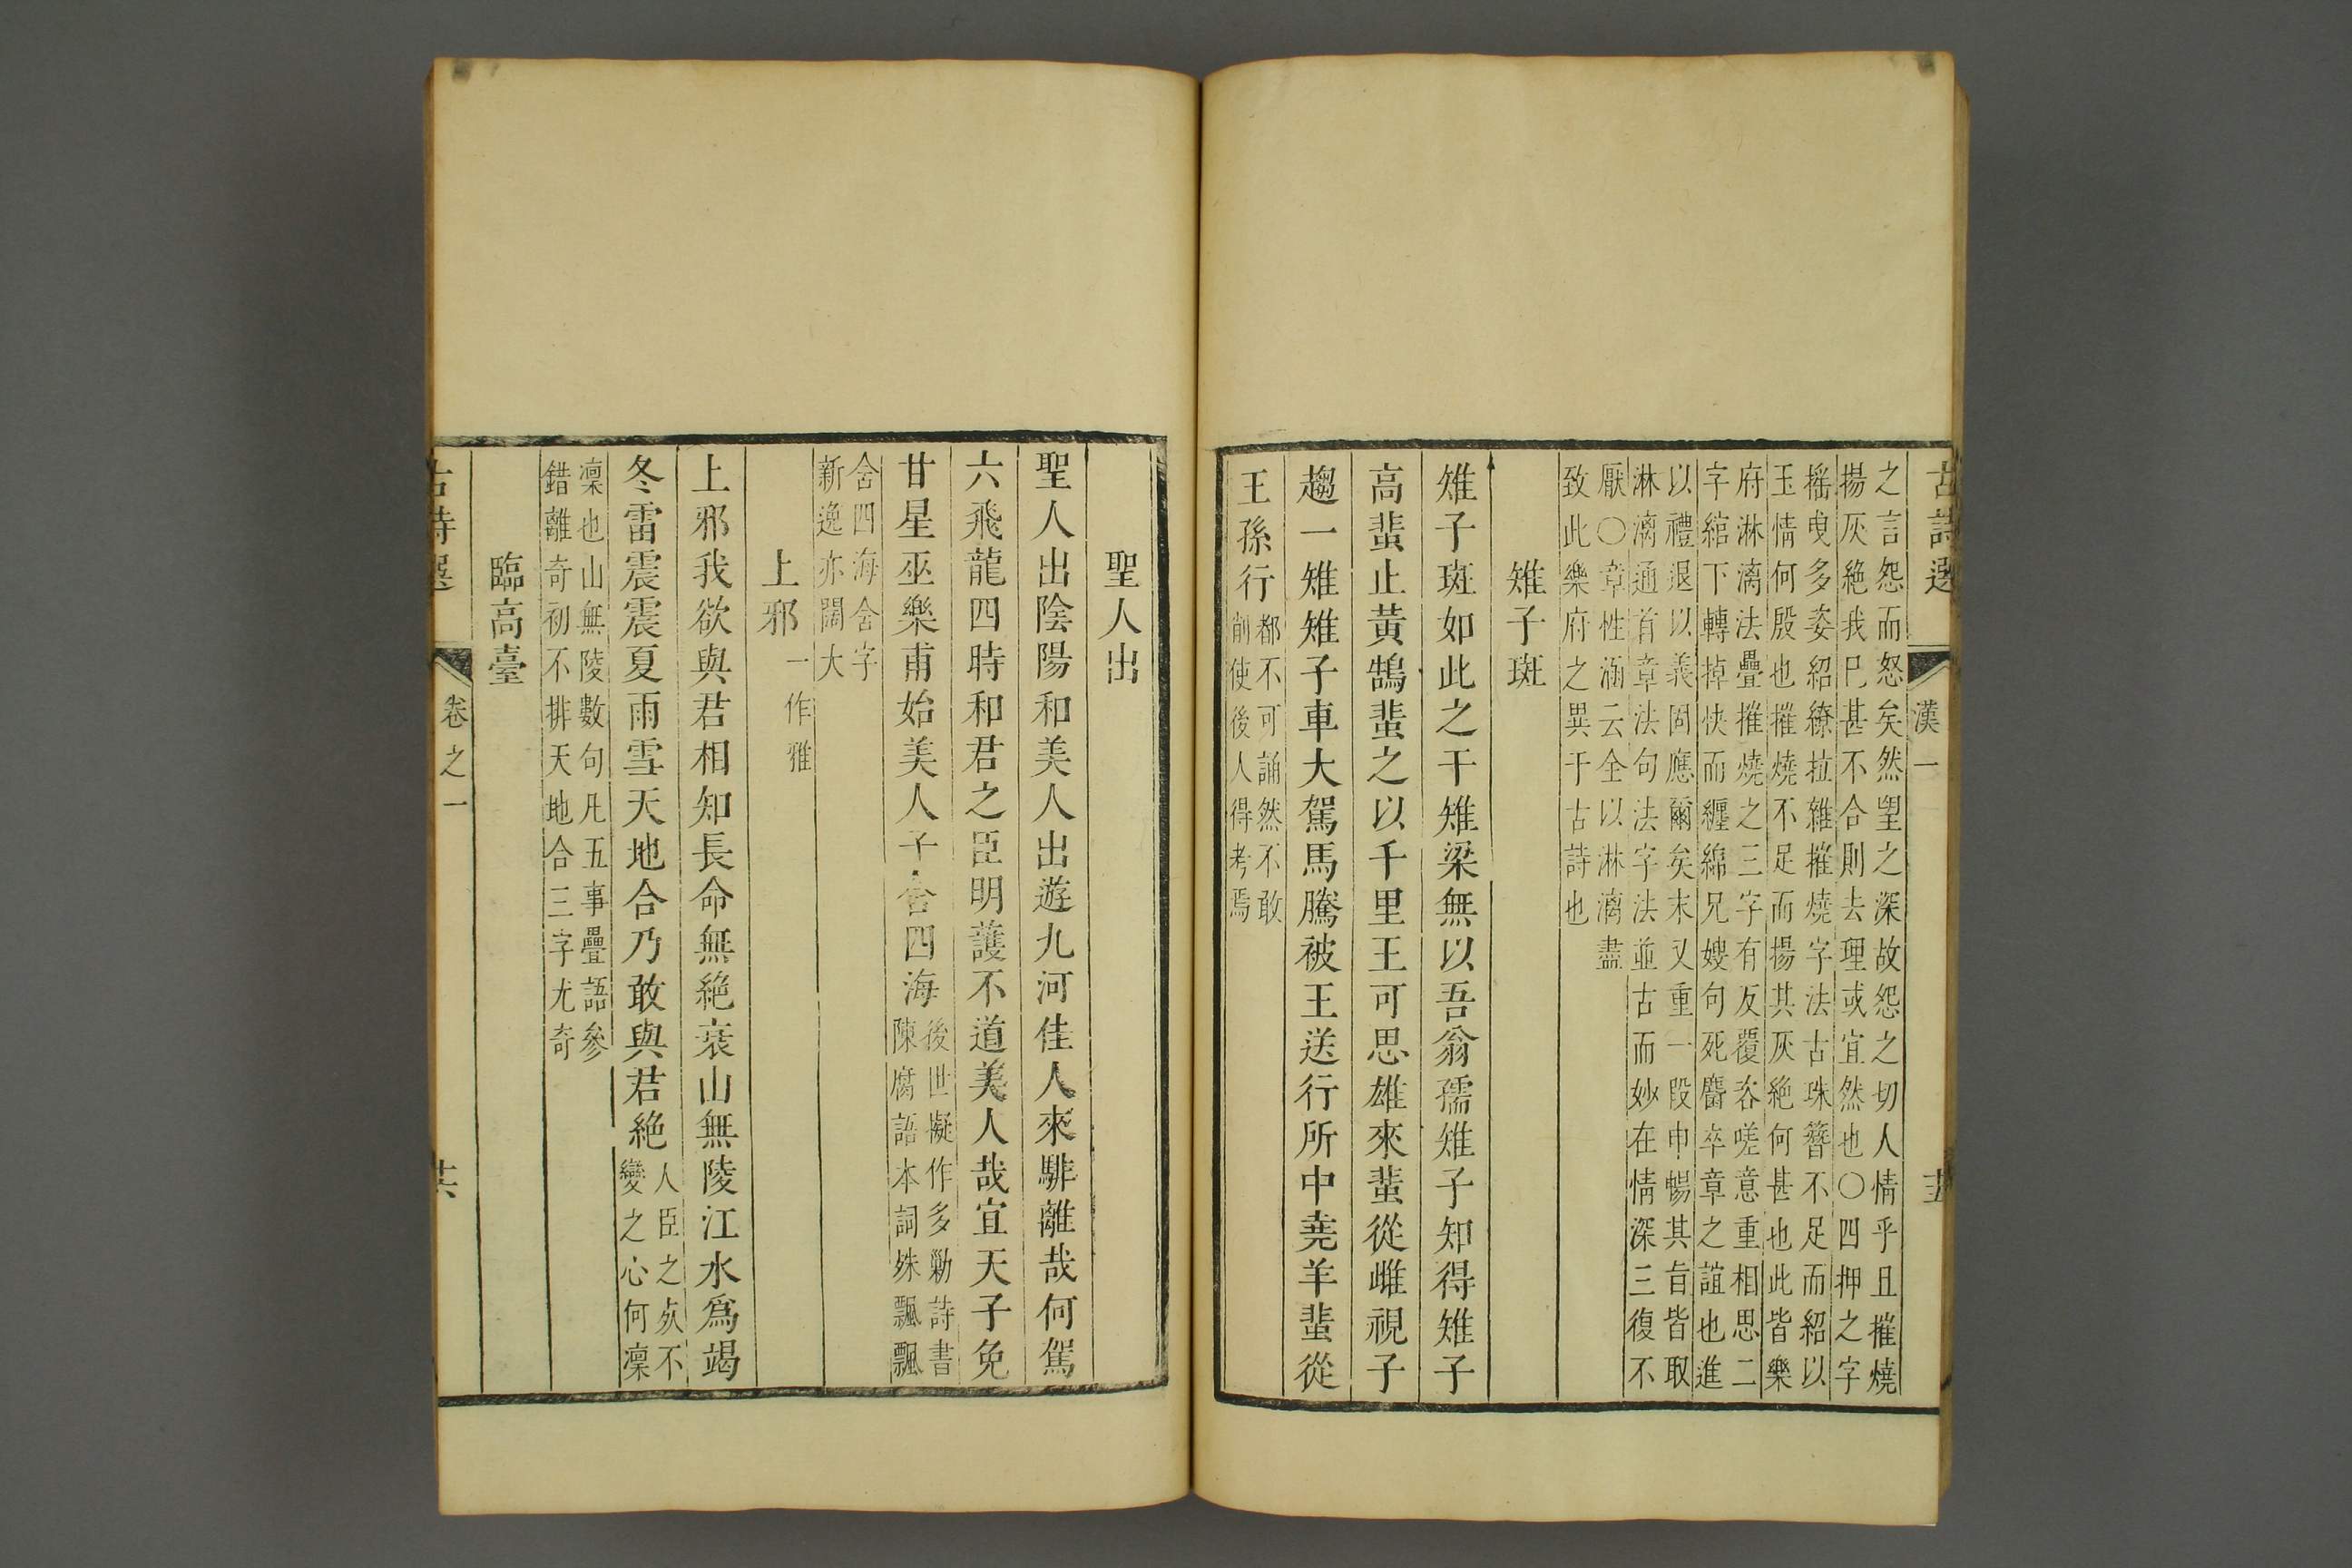 古詩選 漢一
之言怨而怒矣然望之深故怨之切人情乎且摧燒
揚灰絶我巳甚不合則去理或宜然也〇四押之字
摇曳多姿紹繚拉雜摧燒字法古珠簪不足而紹以
玉情何殷也摧燒不足而揚其灰絶何甚也此皆樂
府淋漓法疊摧燒之三字有反覆咨嗟意重相思二
字綰下轉掉快而纏綿兄嫂句死麕卒章之誼也進
以禮退以義固應爾矣末又重一段申暢其旨皆取
淋漓通首章法句法字法並古而妙在情深三復不
厭〇章性涵云全以淋漓盡
致此樂府之異于古詩也
雉子斑
雉子斑如此之干雉梁無以吾翁孺雉子知得雉子
高蜚止黃鵠蜚之以千里王可思雄來蜚從雌視子
趨一雉雉子車大駕馬騰被王送行所中堯羊蜚從
王孫行
都不可誦然不敢
削使後人得考焉
聖人出
聖人出陰陽和美人出遊九河佳人來騑離哉何駕
六飛龍四時和君之臣明護不道美人哉宜天子免
甘星巫樂甫始美人子含四海
後世擬作多勦詩書
陳腐語本詞姝飄飄
含四海含字
新逸亦闊大
上邪 一作雅
上邪我欲與君相知長命無絶衰山無陵江水爲竭
冬雷震震夏雨雪天地合乃敢與君絶
人臣之矢不
變之心何凜
凜也山無陵數句凡五事疊語參
錯離奇初不排天地合三字尤奇
臨高臺
古詩選 卷之一